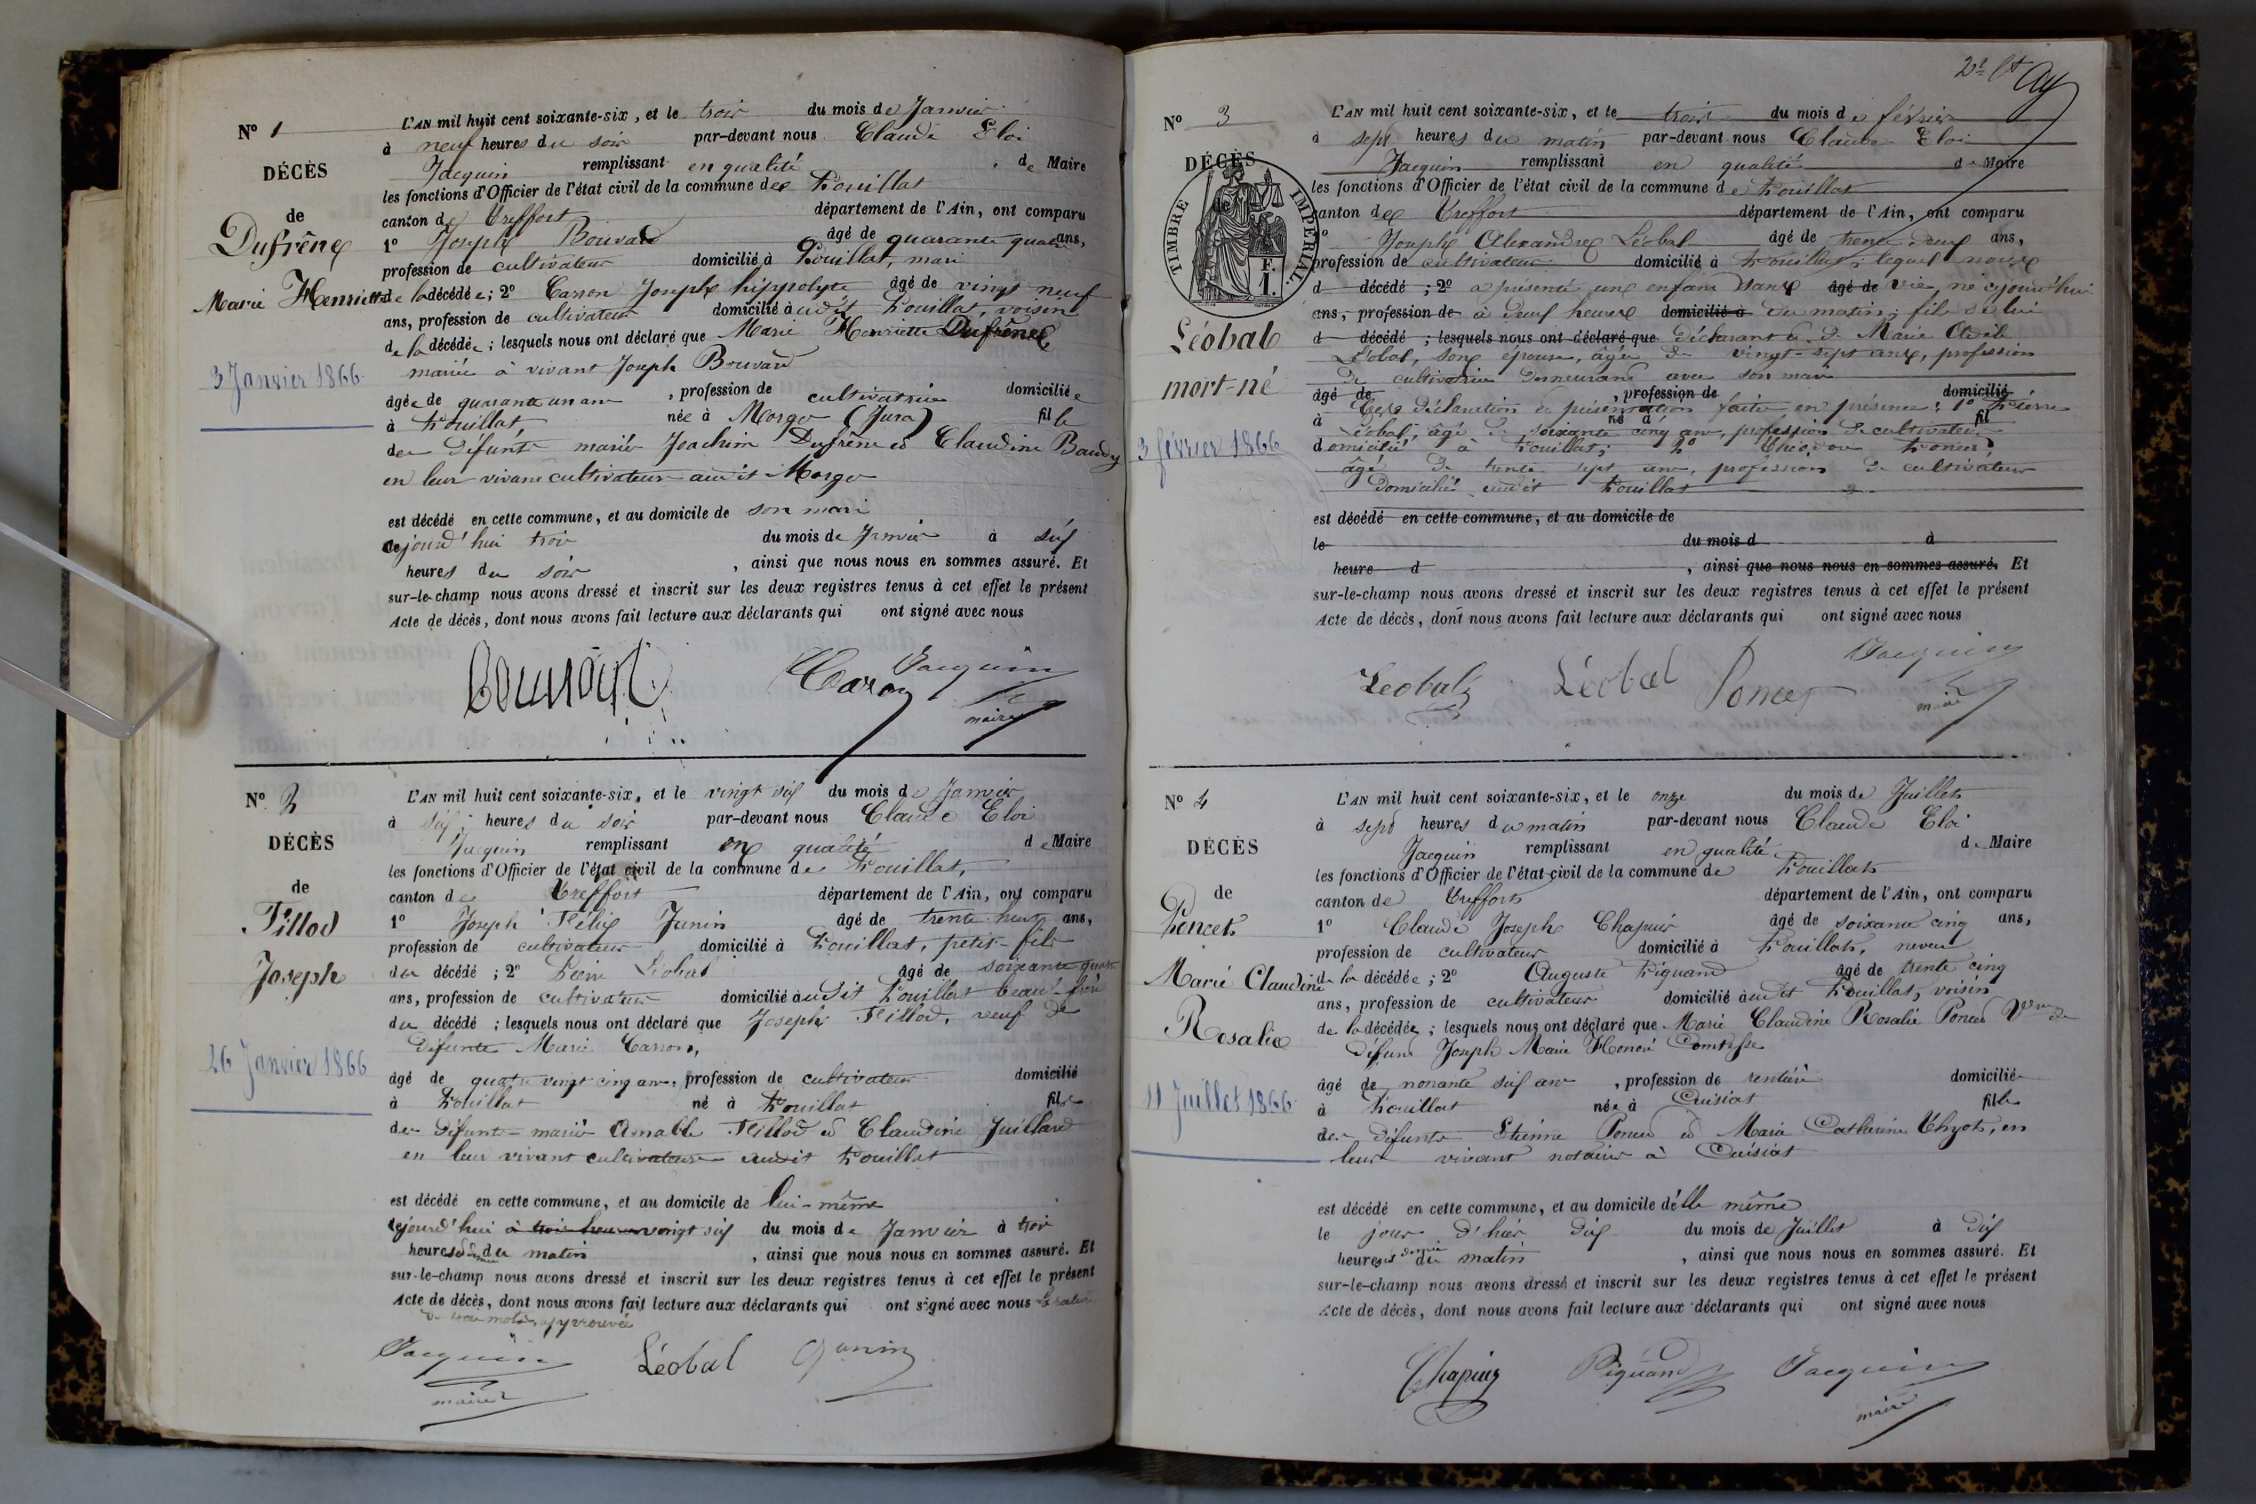 N° 1
DÉCÈS
de
Dufrêne
Marie Henriette
3 Janvier 1866
L'AN mil huit cent soixante-six, et le trois du mois de Janvier
à neuf heures du soir par-devant nous Claude Eloi
Jacquin remplissant en qualité de Maire
les fonctions d'Officier de l'état civil de la commune de Pouillat
canton de Treffort département de l'Ain, ont comparu
1° Joseph Bouvard âgé de quarante quatre ans,
profession de cultivateur domicilié à Pouillat, mari
de la décédée; 2° Carron Joseph hippolyte âgé de vingt neuf
ans, profession de cultivateur domicilié audit Pouillat, voisin
de la décédée; lesquels nous ont déclaré que Marie Henriette Dufrêne
mariée à vivant Joseph Bouvard
âgée de quarante un ans, profession de cultivatrice domiciliée
à Pouillat, née à Morge (Jura) fille
de défunts mariés Joachim Dufrêne et Claudine Baudy
en leur vivant cultivateurs audit Morge
est décédé en cette commune, et au domicile de son mari
cejourd'hui trois du mois de Janvier à six
heures du soir, ainsi que nous nous en sommes assuré. Et
sur-le-champ nous avons dressé et inscrit sur les deux registres tenus à cet effet le présent
Acte de décès, dont nous avons fait lecture aux déclarants qui ont signé avec nous
Bouvard Caron Jacquin
maire
N° 2
DÉCÈS
de
Fillod
Joseph
26 Janvier 1866
L'AN mil huit cent soixante-six, et le vingt six du mois de Janvier
à six heures du soir par-devant nous Claude Eloi
Jacquin remplissant en qualité de Maire
les fonctions d'Officier de l'état civil de la commune de Pouillat,
canton de Treffort département de l'Ain, ont comparu
1° Joseph Félix Janin âgé de trente huit ans,
profession de cultivateur domicilié à Pouillat, petit-fils
du décédé; 2° Pierre Léobal âgé de soixante quatre
ans, profession de cultivateur domicilié audit Pouillat beau-frère
du décédé; lesquels nous ont déclaré que Joseph Fillod, veuf de
défunte Marie Carron,
âgé de quatre vingt cinq ans, profession de cultivateur domicilié
à Pouillat né à Pouillat fils
de défunts mariés Amable Fillod et Claudine Juillard
en leur vivant cultivateurs audit Pouillat
est décédé en cette commune, et au domicile de lui-même
cejourd'hui à trois heures vingt six du mois de Janvier à trois
heures du matin, ainsi que nous nous en sommes assuré. Et
sur-le-champ nous avons dressé et inscrit sur les deux registres tenus à cet effet le présent
Acte de décès, dont nous avons fait lecture aux déclarants qui ont signé avec nous la rature
de trois mots approuvée
Jacquin Léobal Janin
maire
N° 3
DÉCÈS
de
TIMBRE IMPÉRIAL
F.
1.
Léobal
mort-né
3 février 1866
L'AN mil huit cent soixante-six, et le trois du mois de février
à sept heures du matin par-devant nous Claude Eloi
Jacquin remplissant en qualité de Maire
les fonctions d'Officier de l'état civil de la commune de Pouillat
canton de Treffort département de l'Ain, ont comparu
1° Joseph Alexandre Léobal âgé de trente deux ans,
profession de cultivateur domicilié à Pouillat; lequel nous
d décédé; 2° a présenté un enfant sans âgé de vie, né cejourd'hui
ans, profession de à deux heures domicilié à du matin, fils de lui
d décédé; lesquels nous ont déclaré que déclarant et de Marie Adèle
Léobal, son épouse, âgée de vingt-sept ans, profession
de cultivatrice demeurant avec son mari
âgé de, profession de domicilié
Cette déclaration et présentation faite en présence: 1° Pierre
à né à fil
Léobal, âgé de soixante cinq ans, profession de cultivateur
domicilié à Pouillat; 2° Théodore Poncet
âgé de trente sept ans, profession de cultivateur
domicilié audit Pouillat
est décédé en cette commune, et au domicile de
le du mois d à
heure d, ainsi que nous nous en sommes assuré. Et
sur-le-champ nous avons dressé et inscrit sur les deux registres tenus à cet effet le présent
Acte de décès, dont nous avons fait lecture aux déclarants qui ont signé avec nous
Leobal Léobal Poncet Jacquin
maire
N° 4
DÉCÈS
de
Poncet
Marie Claudine
Rosalie
11 Juillet 1866
L'AN mil huit cent soixante-six, et le onze du mois de Juillet
à sept heures du matin par-devant nous Claude Eloi
Jacquin remplissant en qualité de Maire
les fonctions d'Officier de l'état civil de la commune de Pouillat
canton de Treffort département de l'Ain, ont comparu
1° Claude Joseph Chapuis âgé de soixante cinq ans,
profession de cultivateur domicilié à Pouillat, neveu
de la décédée; 2° Auguste Piquand âgé de trente cinq
ans, profession de cultivateur domicilié audit Pouillat, voisin
de la décédée; lesquels nous ont déclaré que Marie Claudine Rosalie Poncet Vve de
défunt Joseph Marie Honoré
âgé de nonante six ans, profession de rentière domiciliée
à Pouillat née à Cuisiat fille
de défunts Etienne Poncet et Marie Catherine Thyot, en
leur vivant notaire à Cuisiat
est décédé en cette commune, et au domicile d'elle même
le jour d'hier dix du mois de Juillet à dix
heures et demie du matin, ainsi que nous nous en sommes assuré. Et
sur-le-champ nous avons dressé et inscrit sur les deux registres tenus à cet effet le présent
Acte de décès, dont nous avons fait lecture aux déclarants qui ont signé avec nous
Chapuis Piquand Jacquin
maire